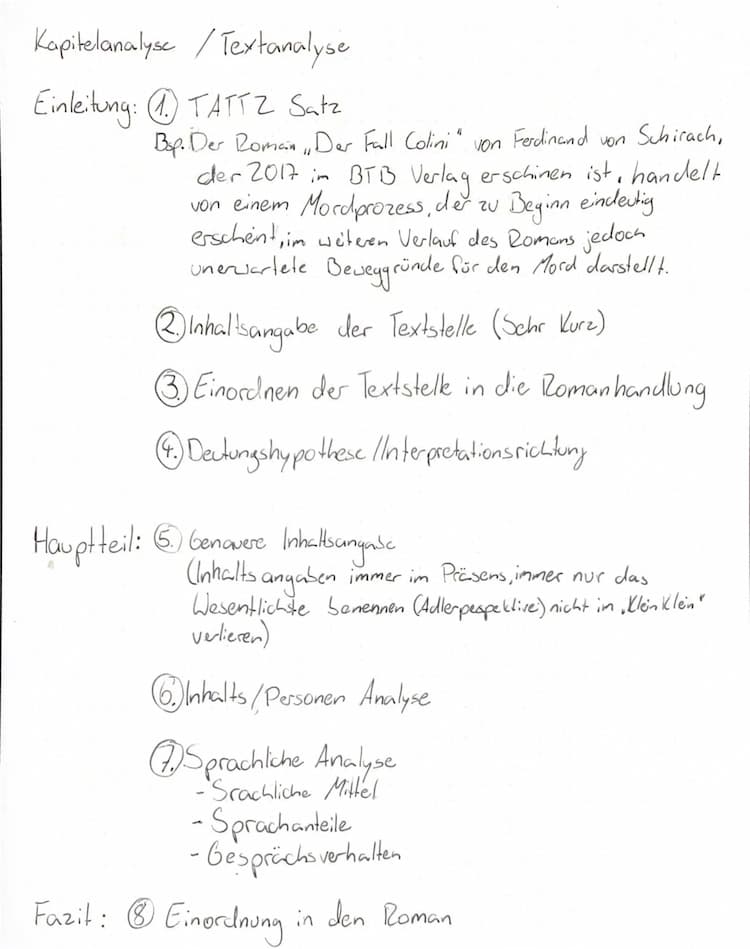 Kapitelanalyse / Textanalyse
Einleitung: 1. TATTZ Satz
Bsp. Der Roman „Der Fall Colini" von Ferdinand von Schirach,
der 2017 im BTB Verlag erschinen ist, handelt
von einem Mordprozess, der zu Beginn eindeutig
erscheint, im weiteren Verlauf des Romans jedoch
unerwartete Beweggründe für den Mord darstellt.
2. Inhaltsangabe der Textstelle (Sehr Kurz)
3. Einordnen der Textstelle in die Romanhandlung
4. Deutungshypothese / Interpretationsrichtung
Hauptteil: 5. Genauere Inhaltsangabe
(Inhaltsangaben immer im Präsens, immer nur das
Wesentlichste benennen (Adlerpespektive) nicht in „Klein Klein"
verlieren)
6. Inhalts / Personen Analyse
7. Sprachliche Analyse
- Srachliche Mittel
- Sprachanteile
- Gesprächsverhalten
Fazit: 8 Einordnung in den Roman